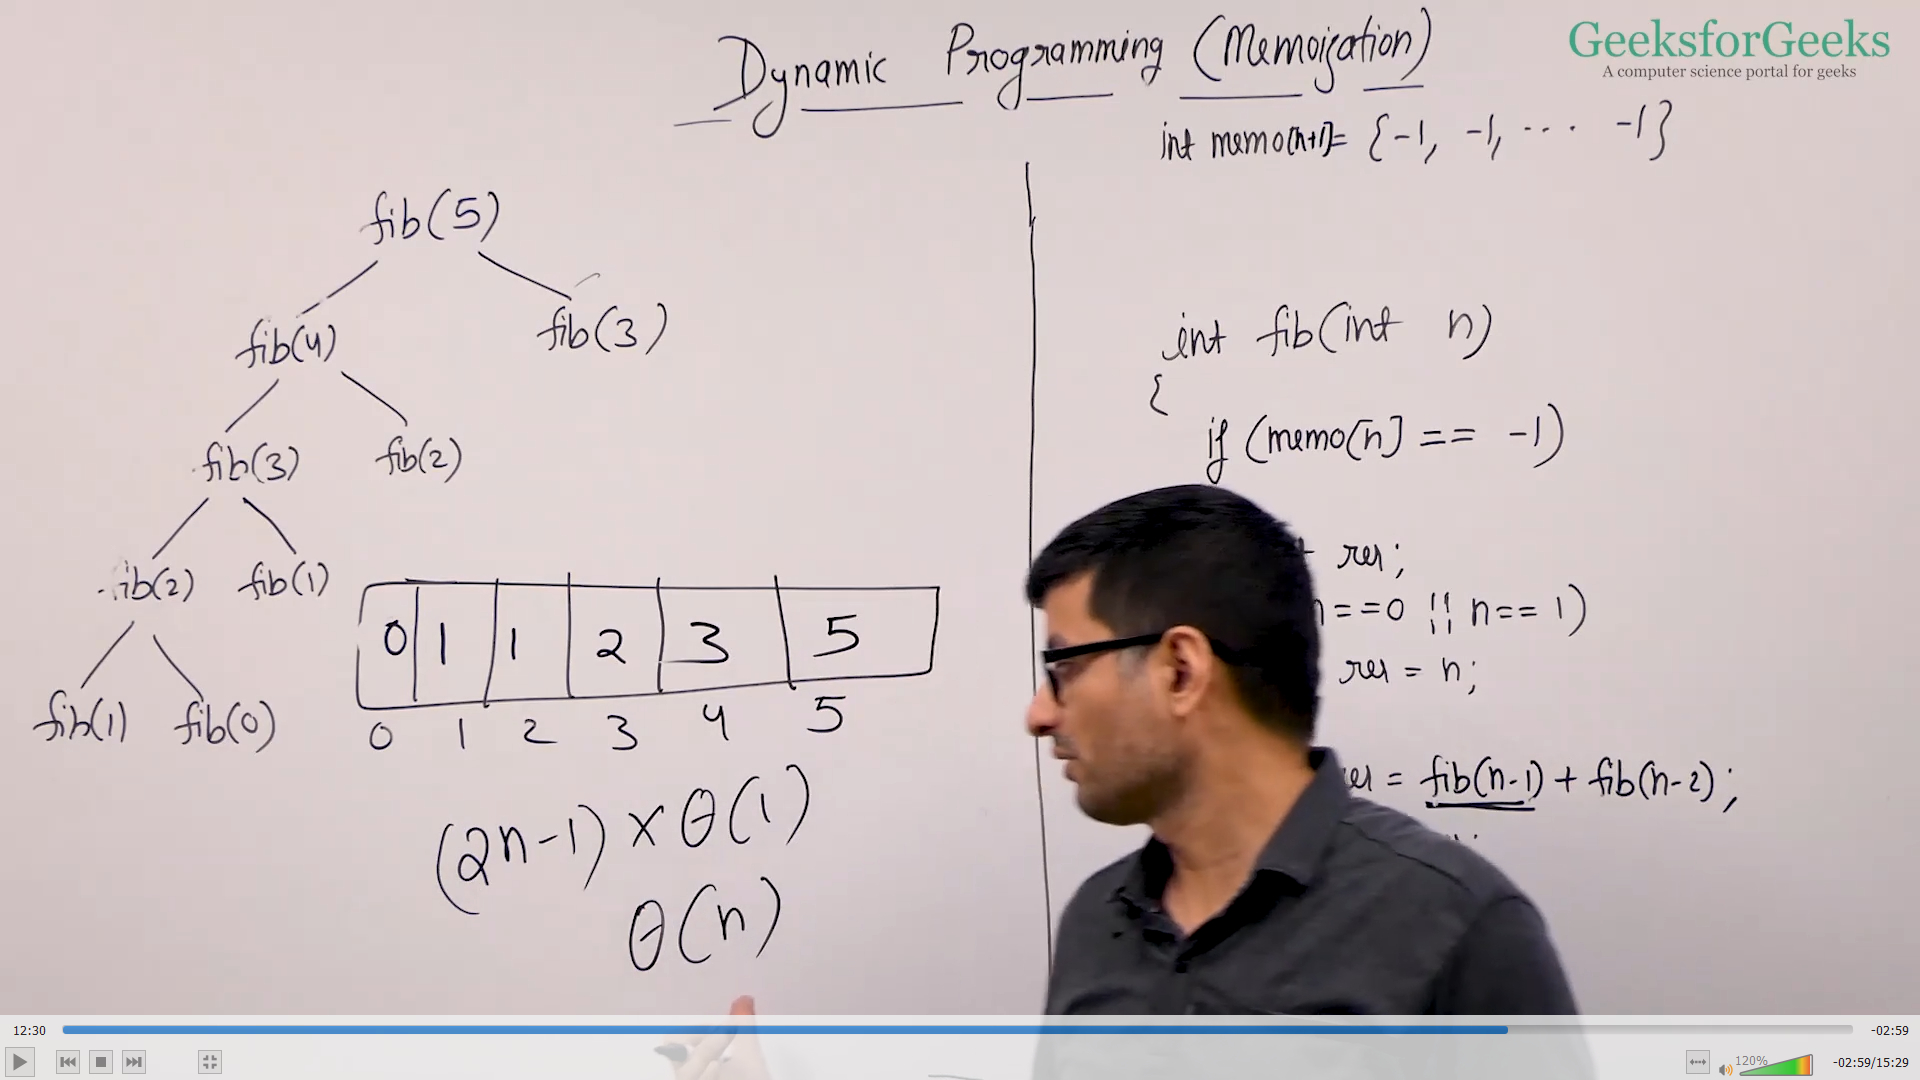 Dynamic Programming (Memoization)
GeeksforGeeks
A computer science portal for geeks
int memo[n+1]= {-1, -1, ... -1}
fib(5)
fib(4) fib(3)
fib(3) fib(2)
ib(2) fib(1)
fib(1) fib(0)
0 1 1 2 3 5
0 1 2 3 4 5
(2n-1) x θ(1)
θ(n)
int fib(int n)
{
if (memo[n] == -1)
res;
n==0 || n==1)
res = n;
res = fib(n-1) + fib(n-2);
12:30
-02:59
120%
-02:59/15:29